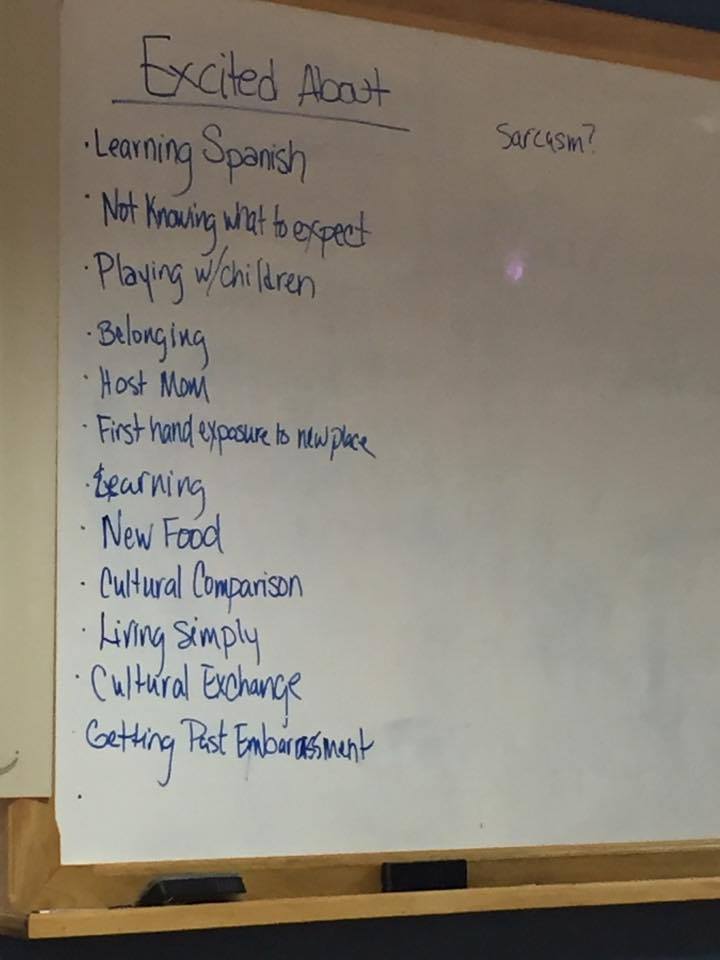 Excited About
Sarcasm?
· Learning Spanish
· Not Knowing what to expect
· Playing w/children
· Belonging
· Host Mom
· First hand exposure to new place
· Learning
· New Food
· Cultural Comparison
· Living Simply
· Cultural Exchange
· Getting Past Embarassment
·